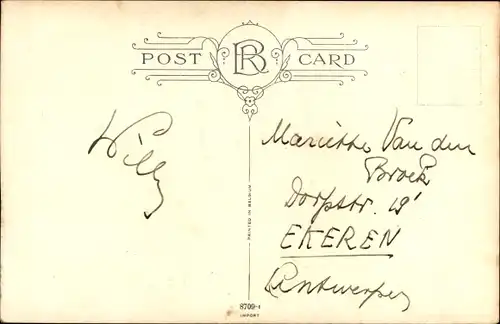 POST CARD
BR
Willy
Mariette Van den
Broek
Dorpstr. 19'
EKEREN
Antwerpen
PRINTED IN BELGIUM
8709-1
IMPORT